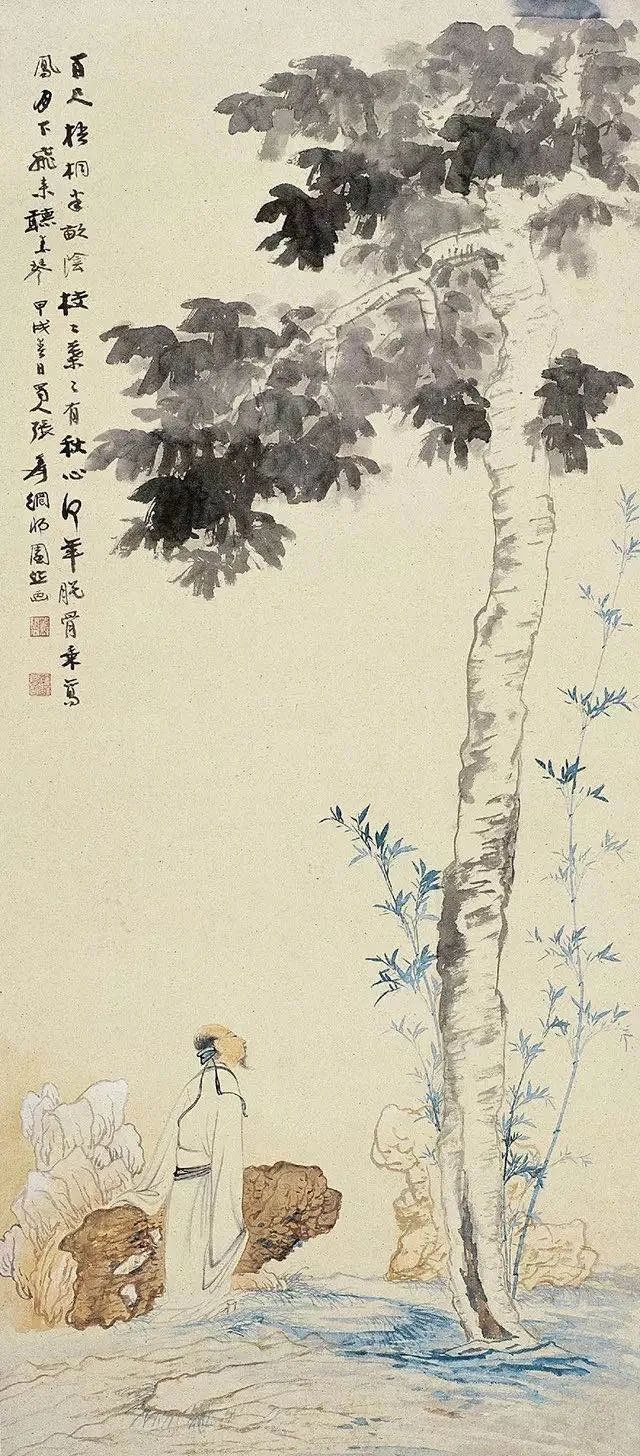 百尺梧桐半畝陰枝〻葉〻有秋心何年脫骨乘鸞
鳳月下飛來聽玉琴 甲戌春日蜀人張爰網師園並画